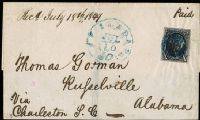 Recd July 18th 1847
Paid
JUL
10
Thomas Gorman
Russelville
Alabama
Via
Charleston S. C.